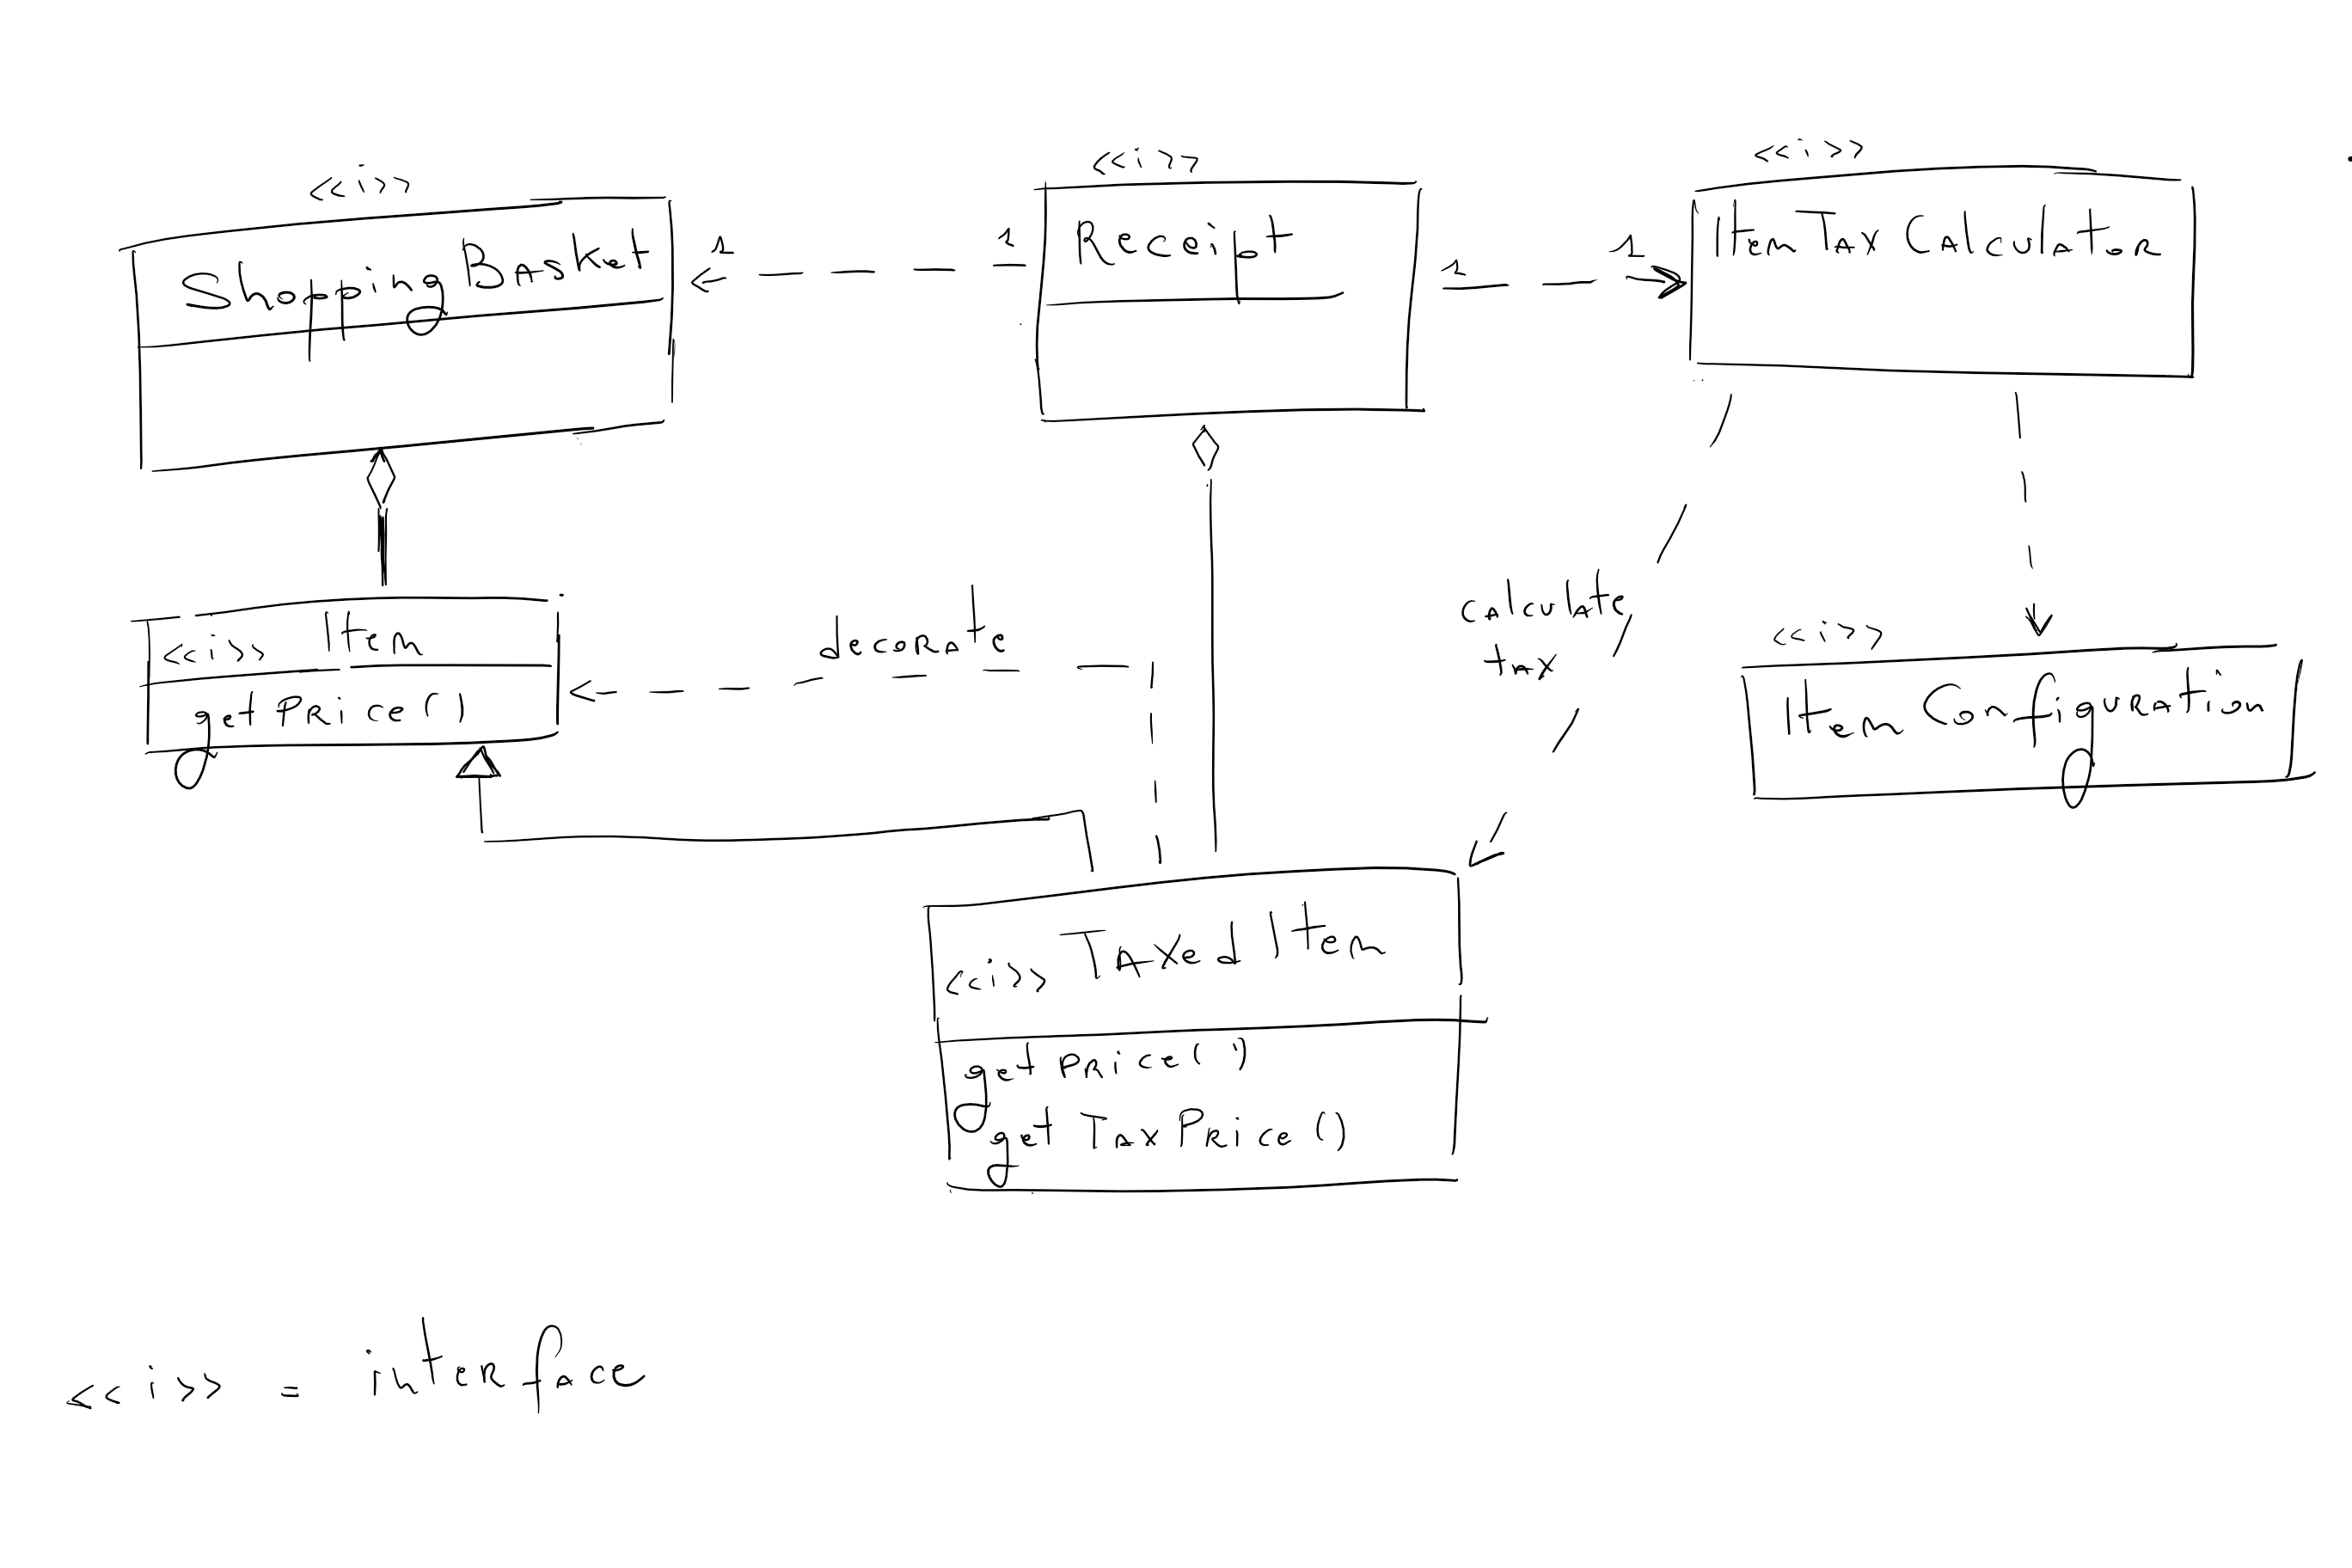 <<i>>
ShoppingBasket
1
1
<<i>>
Receipt
1
1
<<i>>
ItemTaxCalculator
<<i>> Item
getPrice()
decorate
calculate
tax
<<i>>
ItemConfiguration
<<i>> TaxedItem
getPrice()
getTaxPrice()
<<i>> = interface